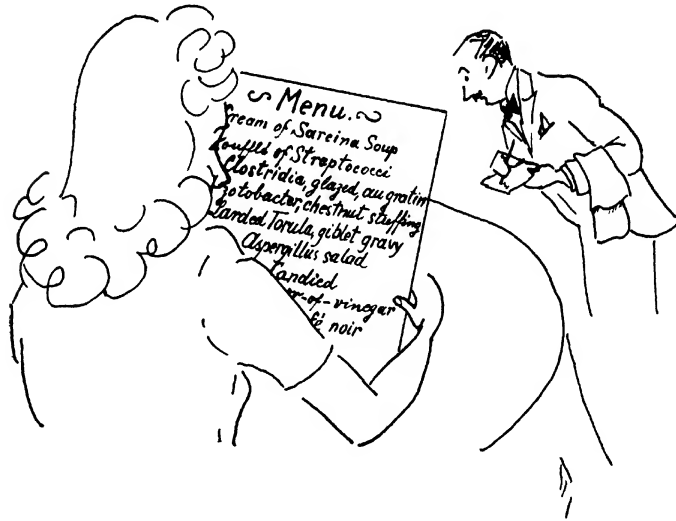 Menu.
Cream of Sarcina Soup
Soufflé of Streptococci
Clostridia, glazed, au gratin
otobacter, chestnut stuffing
Larded Torula, giblet gravy
Aspergillus salad
Candied
er-of-vinegar
fé noir